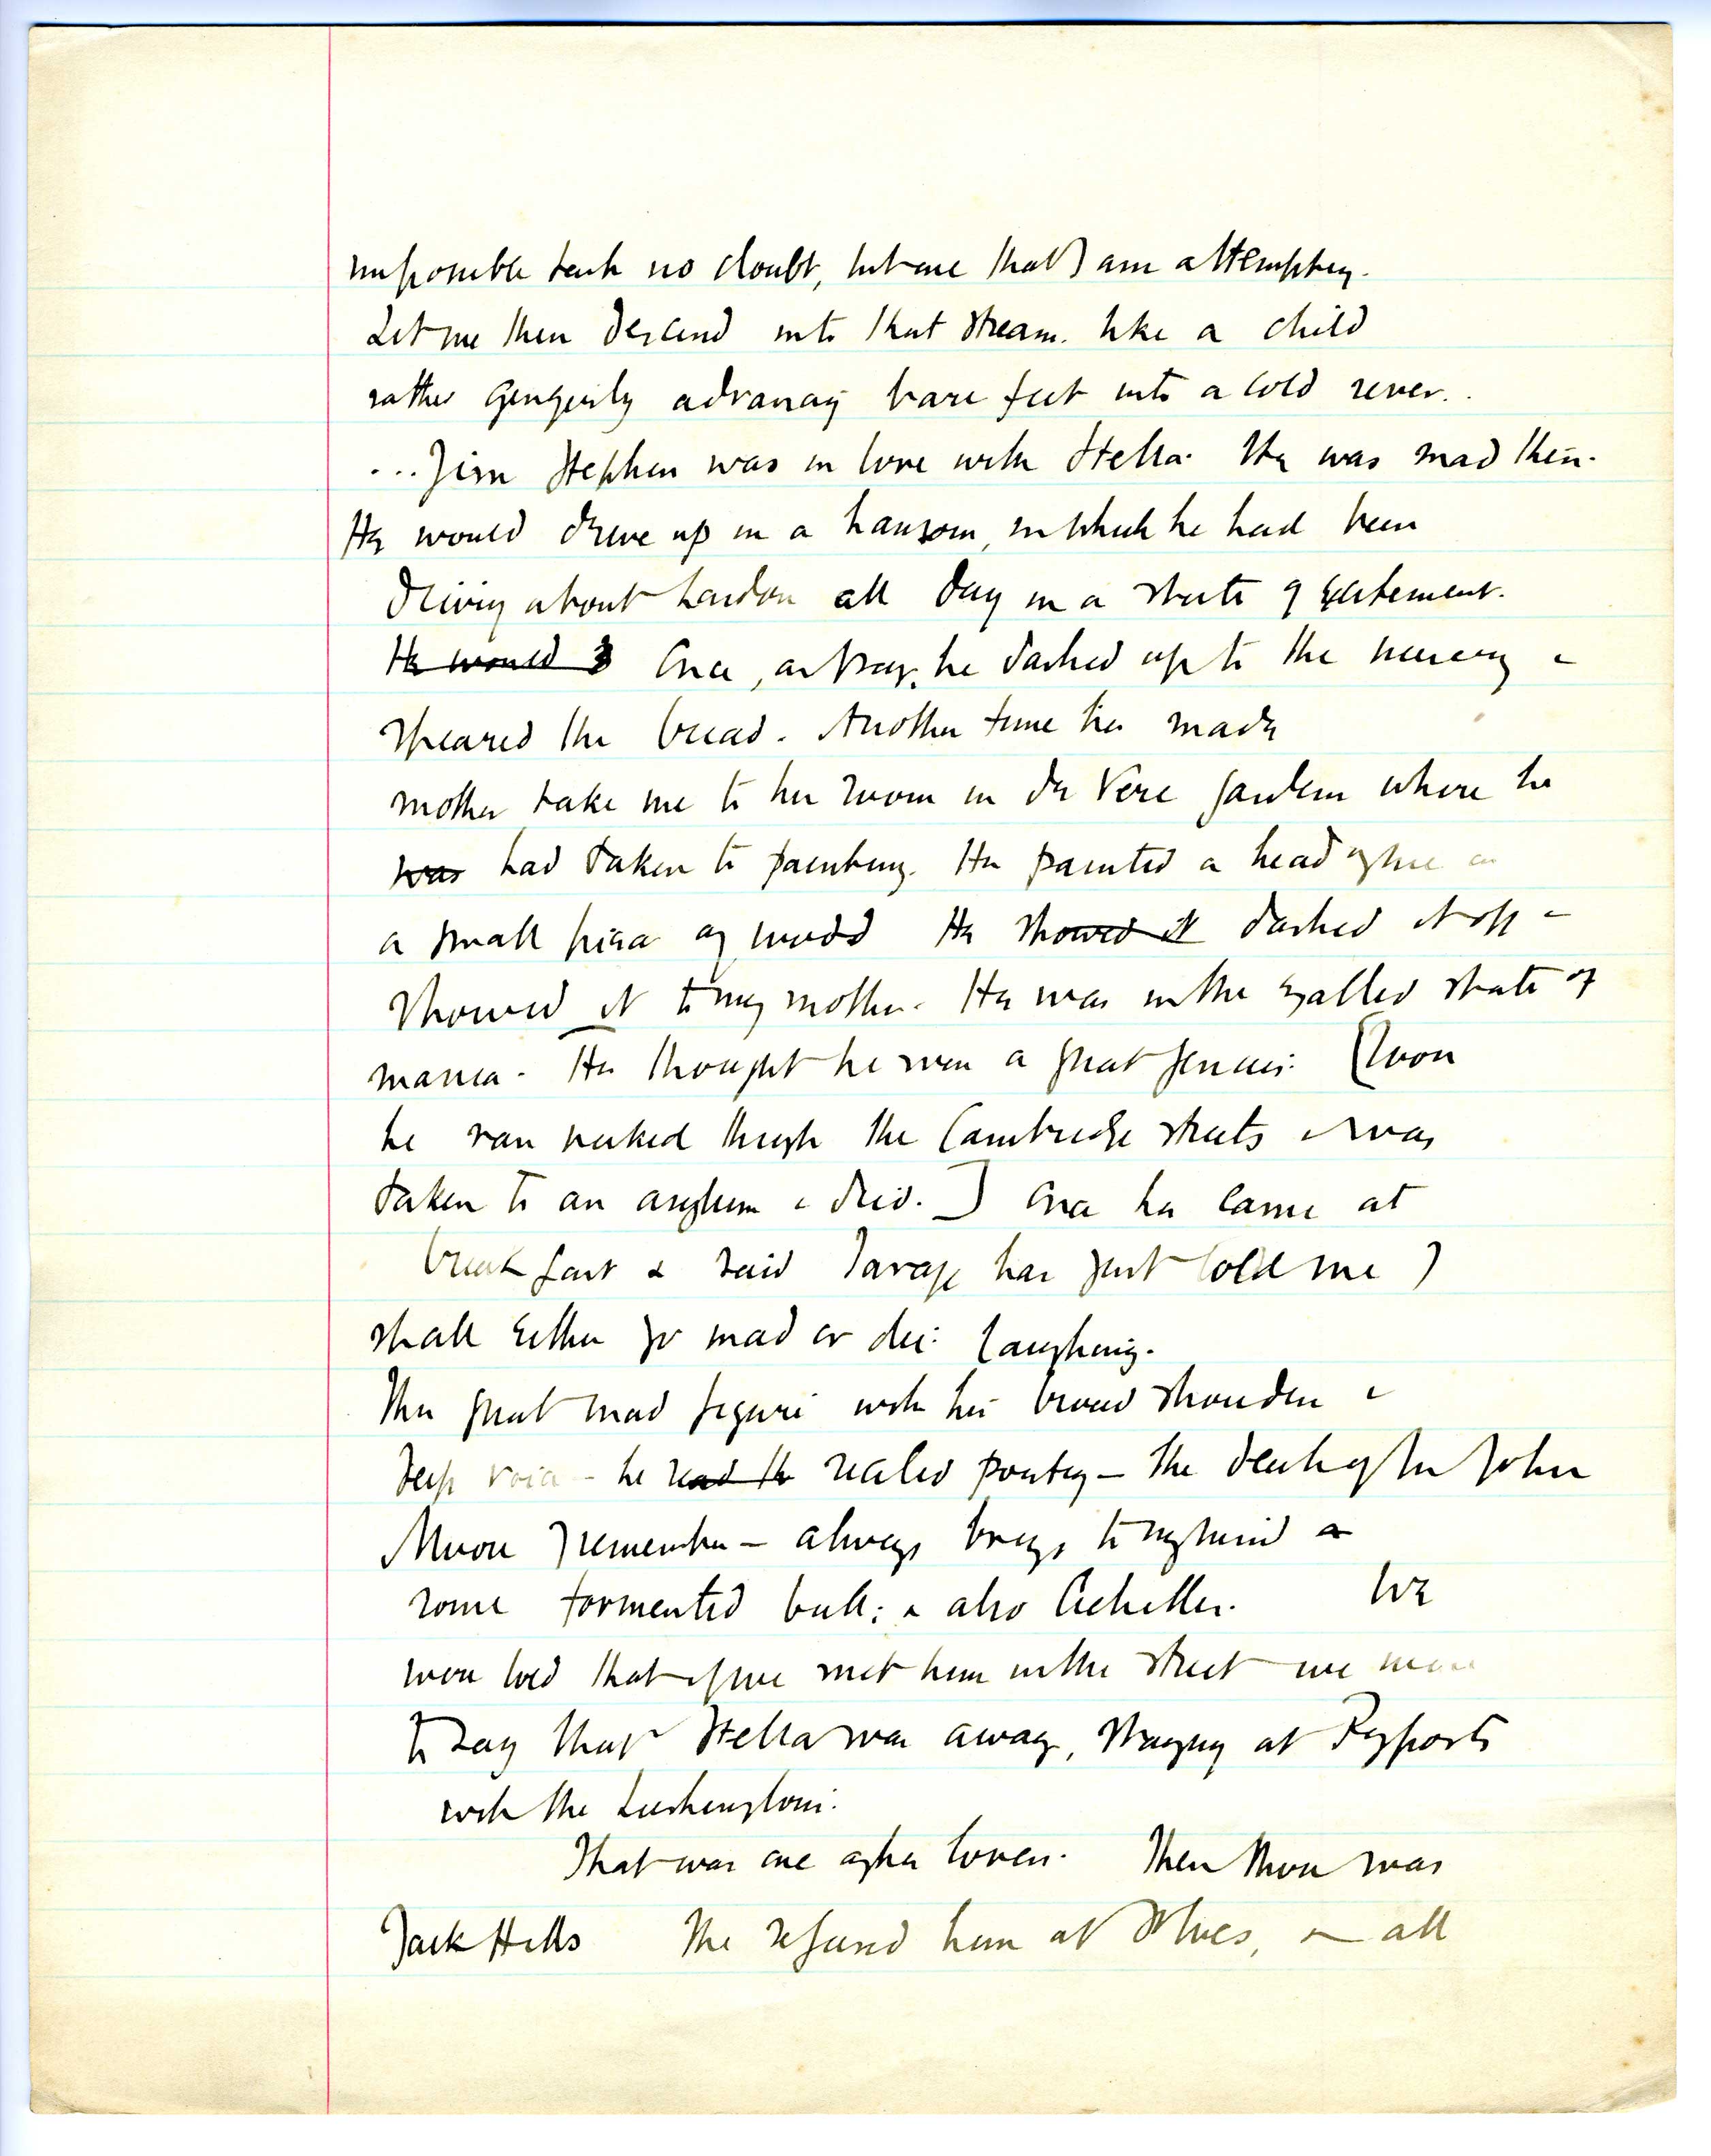 impossible task no doubt, but one that I am attempting.
Let me then descend into that stream. like a child
rather gingerly advancing bare feet into a cold river..
...Jim Stephen was in love with Stella. He was mad then.
He would drive up in a hansom, in which he had been
driving about London all day in a state of excitement.
He would Once, , he dashed up to the nursery &
speared the bread. Another time he made
mother take me to his room in De Vere Gardens where he
was had taken to painting. He painted a head of me on
a small piece of wood He showed it dashed it off &
showed it to my mother. He was in the exalted state of
mania. He thought he was a great genius. (Soon
he ran naked through the Cambridge streets & was
taken to an asylum & died.) Once he came at
breakfast & said Savage has just told me I
shall either go mad or die. laughing.
The great mad figure with his broad shoulders &
deep voice - he read the recited poetry - The death of Sir John
Moore I remember - always brings to my mind &
some tormented bull: & also Achilles. We
were told that if we met him in the street we were
to say that Stella was away, staying at Pyports
with the Lushingtons.
That was one of her lovers. Then there was
Jack Hills She refused him at St Ives, & all